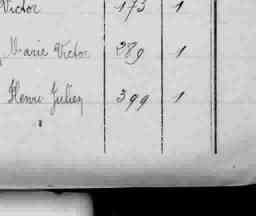 Victor 173 1
Marie Victor 289 1
Henri Julien 399 1